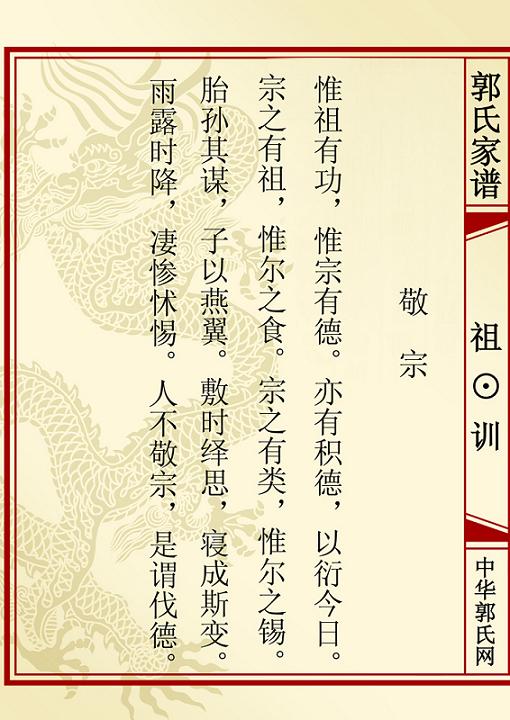 郭氏家谱
祖⊙训
中华郭氏网
敬宗
惟祖有功，惟宗有德。亦有积德，以衍今日。
宗之有祖，惟尔之食。宗之有类，惟尔之锡。
胎孙其谋，子以燕翼。敷时绎思，寝成斯变。
雨露时降，凄惨怵惕。人不敬宗，是谓伐德。